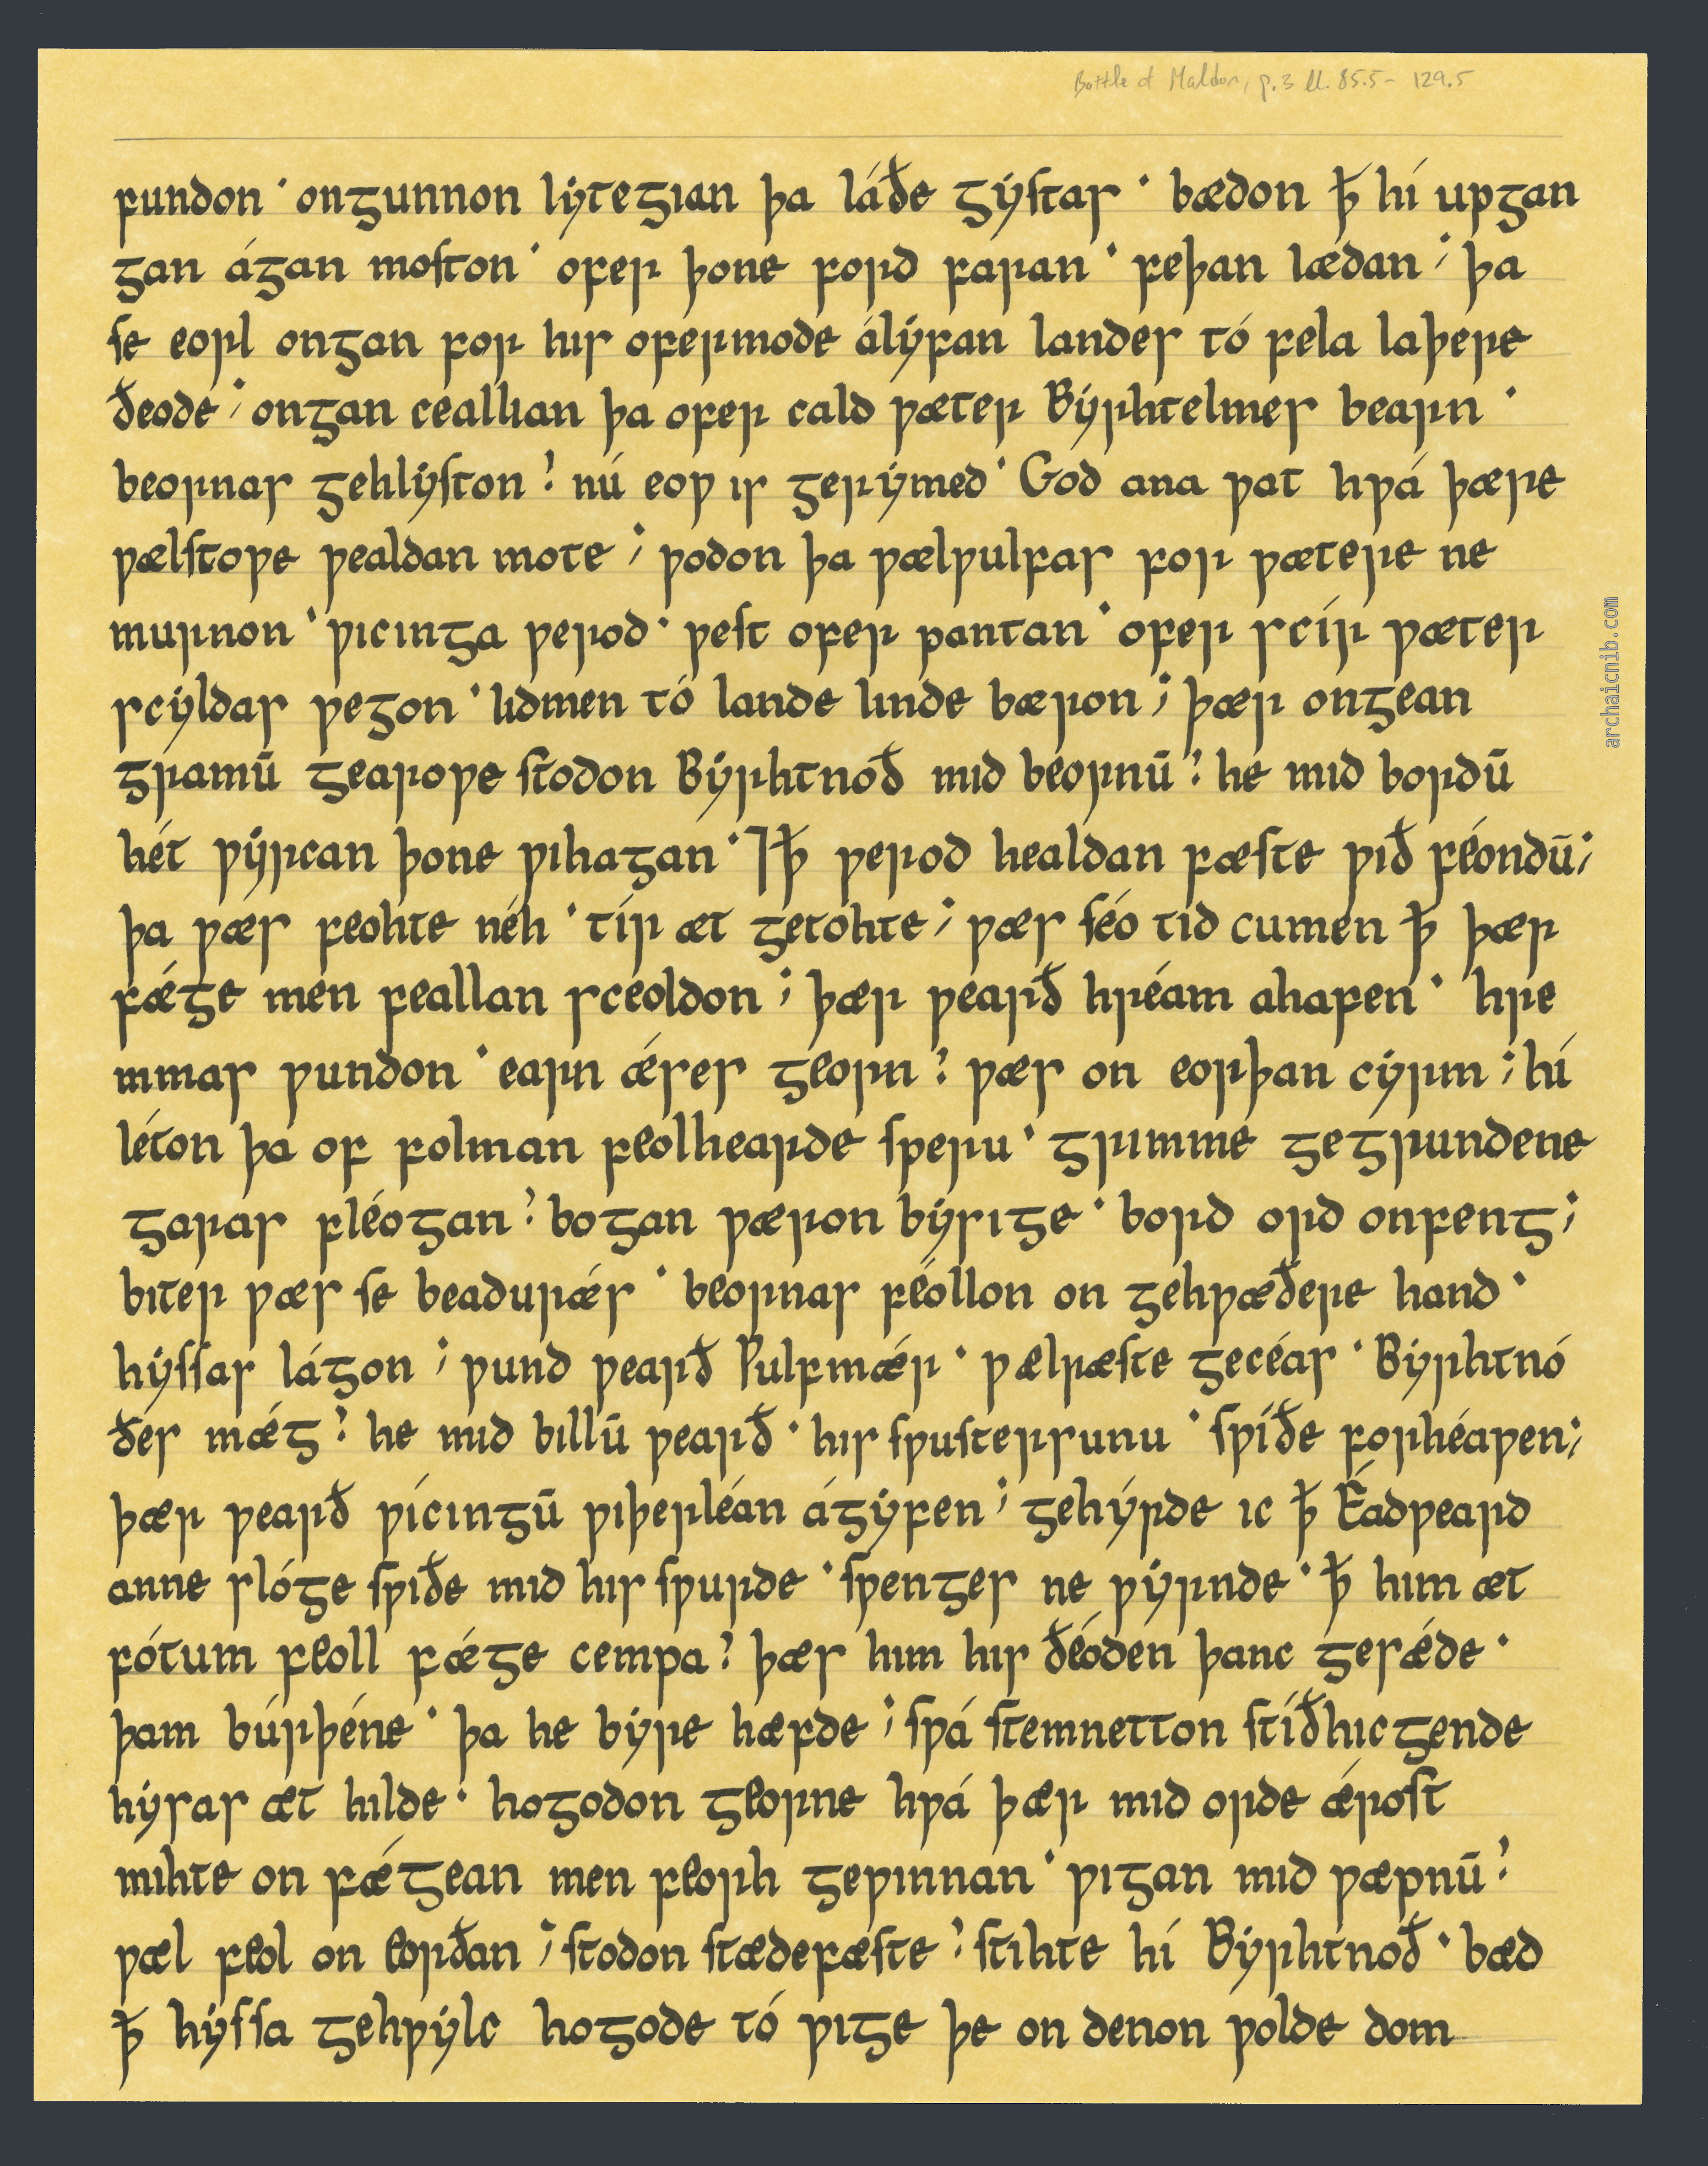 Battle of Maldon, p.3 ll. 85.5 - 129.5
fundon · ongunnon lẏtegıan þa láðe gẏſtas · bædon ꝥ hí upgan
gan ágan moſton · ofer þone ford faran · feþan lædan ; þa
ſe eorl ongan for hıs ofermode álẏfan landes tó fela laþere
ðeode ; ongan ceallıan þa ofer cald ƿæter Bẏrhtelmes bearn ·
beornas gehlẏſton ? nú eoƿ ıs gerẏmed · God ana ƿat hƿá þære
ƿælſtoƿe ƿealdan mote ; ƿodon þa ƿælƿulfas for ƿætere ne
murnon · ƿıcınga ƿerod · ƿeſt ofer pantan · ofer scír ƿæter
scẏldas ƿegon · lıdmen tó lande lınde bæron ; þær ongean
gramū gearoƿe ſtodon Bẏrhtnoð mıd beornū ? he mıd bordū
hét ƿẏrcan þone ƿıhagan · ⁊ ꝥ ƿerod healdan fæſte ƿıð féondū ;
þa ƿæs feohte néh · tír æt getohte ; ƿæs ſéo tid cumen ꝥ þær
fǽge men feallan sceoldon ; þær ƿearð hréam ahafen · hre
mmas ƿundon · earn ǽses georn ? ƿæs on eorþan cẏrm ; hí
léton þa of folman feolhearde ſperu · grımme gegrundene
garas fléogan ? bogan ƿæron bẏsıge · bord ord onfeng ;
bıter ƿæs ſe beadurǽs · beornas féollon on gehƿæðere hand ·
hẏſſas lágon ; ƿund ƿearð Ƿulfmǽr · ƿælræſte gecéas · Bẏrhtnó
ðes mǽg ? he mıd bıllū ƿearð · hıs ſƿuſtersunu · ſƿíðe forhéaƿen ;
þær ƿearð ƿícıngū ƿıþerléan ágẏfen ; gehẏ́rde ıc ꝥ Éadƿeard
anne slóge ſƿıðe mıd hıs ſƿurde · ſƿenges ne ƿẏrnde · ꝥ hım æt
fótum feoll fǽge cempa ? þæs hım hıs ðéoden þanc gesǽde ·
þam búrþéne · þa he bẏre hæfde ; ſƿá ſtemnetton ſtíðhıcgende
hẏsas æt hılde · hogodon georne hƿá þær mıd orde ǽroſt
mıhte on fǽgean men feorh geƿınnan · ƿıgan mıd ƿæpnū ?
ƿæl feol on eorðan ; ſtodon ſtædefæſte ? ſtıhte hí Bẏrhtnoð · bæd
ꝥ hẏſſa gehƿẏlc hogode tó ƿıge þe on denon ƿolde dom
archaicnib.com